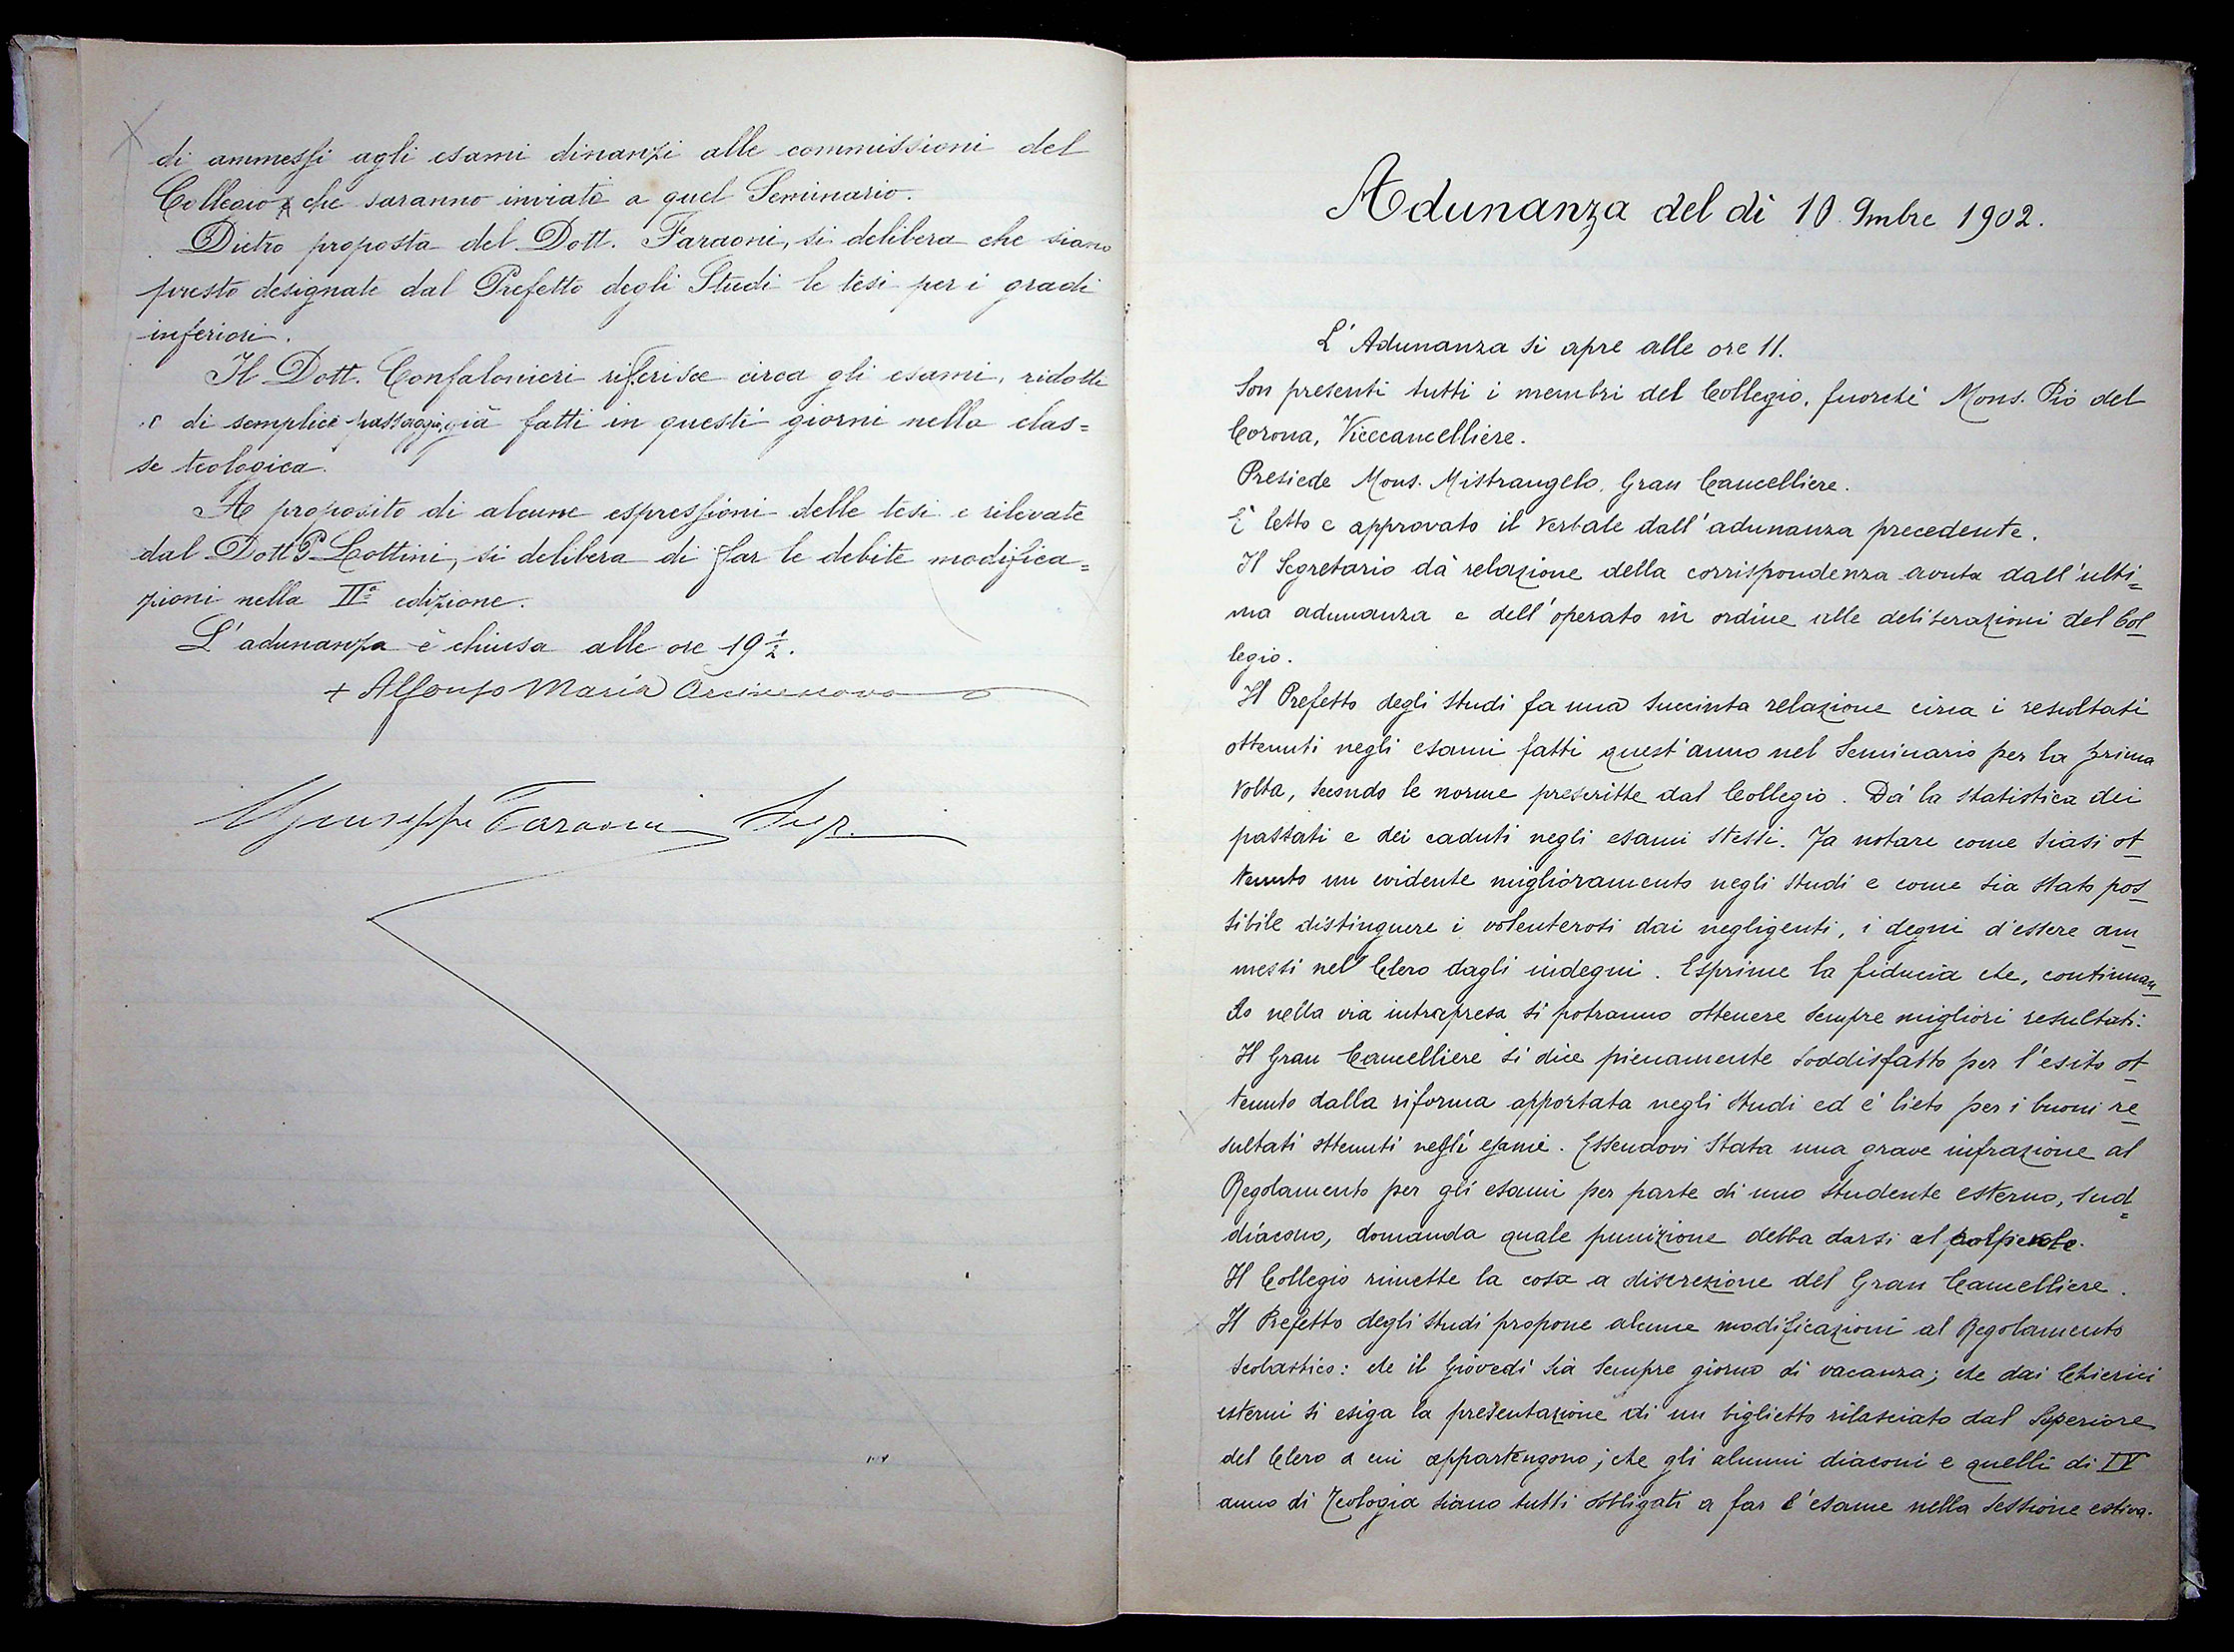 di ammessi agli esami dinanzi alle commissioni del
Collegio che saranno inviate a quel Seminario.
Dietro proposta del Dott. Faraoni, si delibera che siano
presto designate dal Prefetto degli Studi le tesi per i gradi
inferiori.
Il Dott. Confalonieri riferisce circa gli esami, ridotti
di semplice passaggio, già fatti in questi giorni nella clas=
se teologica.
A proposito di alcune espressioni delle tesi e rilevate
dal Dott. P. Lottini, si delibera di far le debite modifica=
zioni nella IIª edizione.
L'adunanza è chiusa alle ore 19 ½.
+ Alfonso Maria Arcivescovo
Giuseppe Faraoni Segr.
Adunanza del dì 10 9mbre 1902.
L'Adunanza si apre alle ore 11.
Son presenti tutti i membri del Collegio, fuorché Mons. Pio del
Corona, Vicecancelliere.
Presiede Mons. Mistrangelo, Gran Cancelliere.
È letto e approvato il verbale dall'adunanza precedente.
Il Segretario dà relazione della corrispondenza avuta dall'ulti=
ma adunanza e dell'operato in ordine alle deliberazioni del Col_
legio.
Il Prefetto degli Studi fa una succinta relazione circa i resultati
ottenuti negli esami fatti quest'anno nel Seminario per la prima
volta, secondo le norme prescritte dal Collegio. Dà la statistica dei
passati e dei caduti negli esami stessi. Fa notare come siasi ot_
tenuto un evidente miglioramento negli studi e come sia stato pos_
sibile distinguere i volenterosi dai negligenti, i degni d'essere am_
messi nel Clero dagli indegni. Esprime la fiducia che, continuan_
do nella via intrapresa si potranno ottenere sempre migliori resultati.
Il Gran Cancelliere si dice pienamente soddisfatto per l'esito ot_
tenuto dalla riforma apportata negli studi ed è lieto per i buoni re_
sultati ottenuti negli esami. Essendovi stata una grave infrazione al
Regolamento per gli esami per parte di uno studente esterno, sud=
diacono, domanda quale punizione debba darsi al colpevole.
Il Collegio rimette la cosa a discrezione del Gran Cancelliere.
Il Prefetto degli Studi propone alcune modificazioni al Regolamento
scolastico: che il Giovedì sia sempre giorno di vacanza; che dai Chierici
esterni si esiga la presentazione di un biglietto rilasciato dal Superiore
del Clero a cui appartengono; che gli alunni diaconi e quelli di IV
anno di Teologia siano tutti obbligati a far l'esame nella sessione estiva.